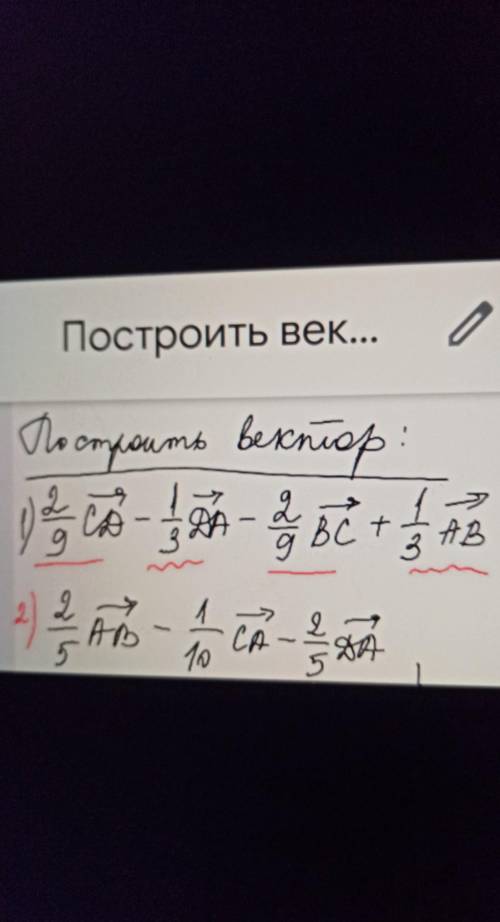 Построить век...
Построить вектор:
1) 2/9 CD⃗ - 1/3 DA⃗ - 2/9 BC⃗ + 1/3 AB⃗
2) 2/5 AB⃗ - 1/10 CA⃗ - 2/5 DA⃗